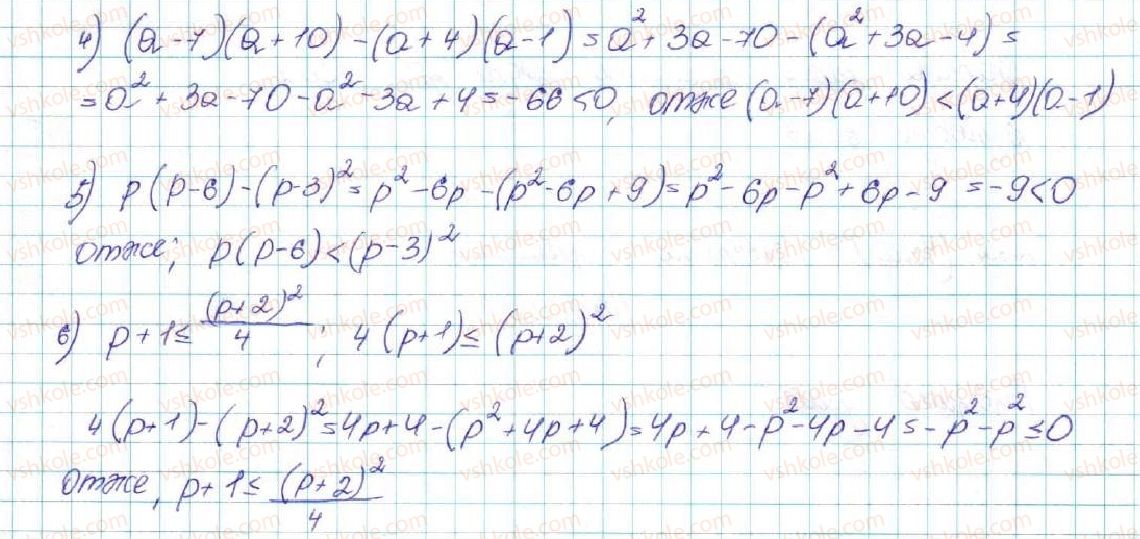 4) (a-7)(a+10)-(a+4)(a-1)=a²+3a-70-(a²+3a-4)=
=a²+3a-70-a²-3a+4=-66<0, отже (a-7)(a+10)<(a+4)(a-1)
5) p(p-6)-(p-3)²=p²-6p-(p²-6p+9)=p²-6p-p²+6p-9=-9<0
отже; p(p-6)<(p-3)²
6) p+1≤(p+2)²/4; 4(p+1)≤(p+2)²
4(p+1)-(p+2)²=4p+4-(p²+4p+4)=4p+4-p²-4p-4=-p²-p²≤0
Отже, p+1≤(p+2)²/4